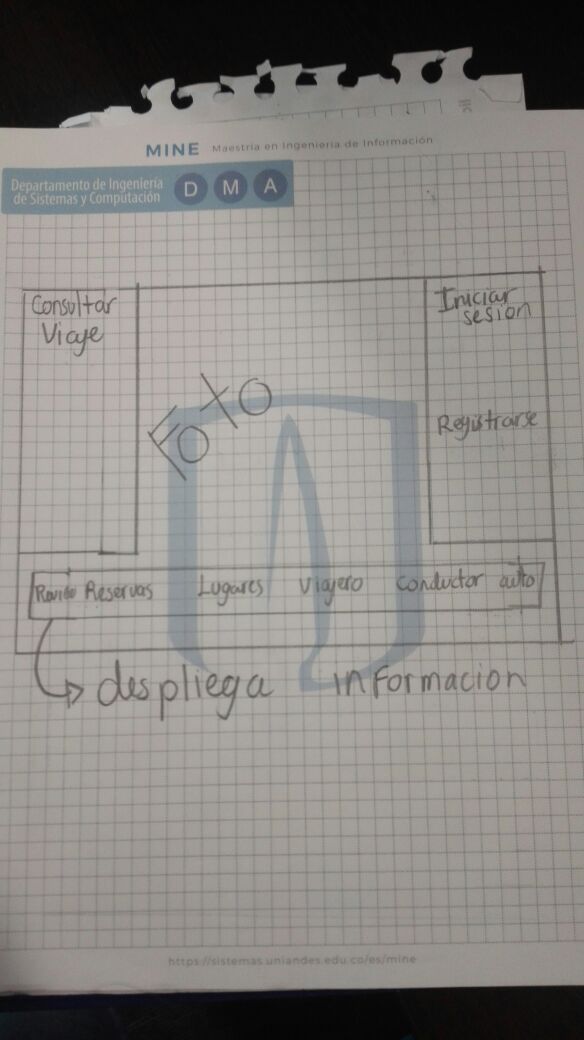 MINE Maestría en Ingeniería de Información
Departamento de Ingeniería
de Sistemas y Computación
D M A
Consultar
Viaje
Foto
Iniciar
sesion
Registrarse
Reservas Lugares Viajero Conductor auto
despliega informacion
https://sistemas.uniandes.edu.co/es/mine